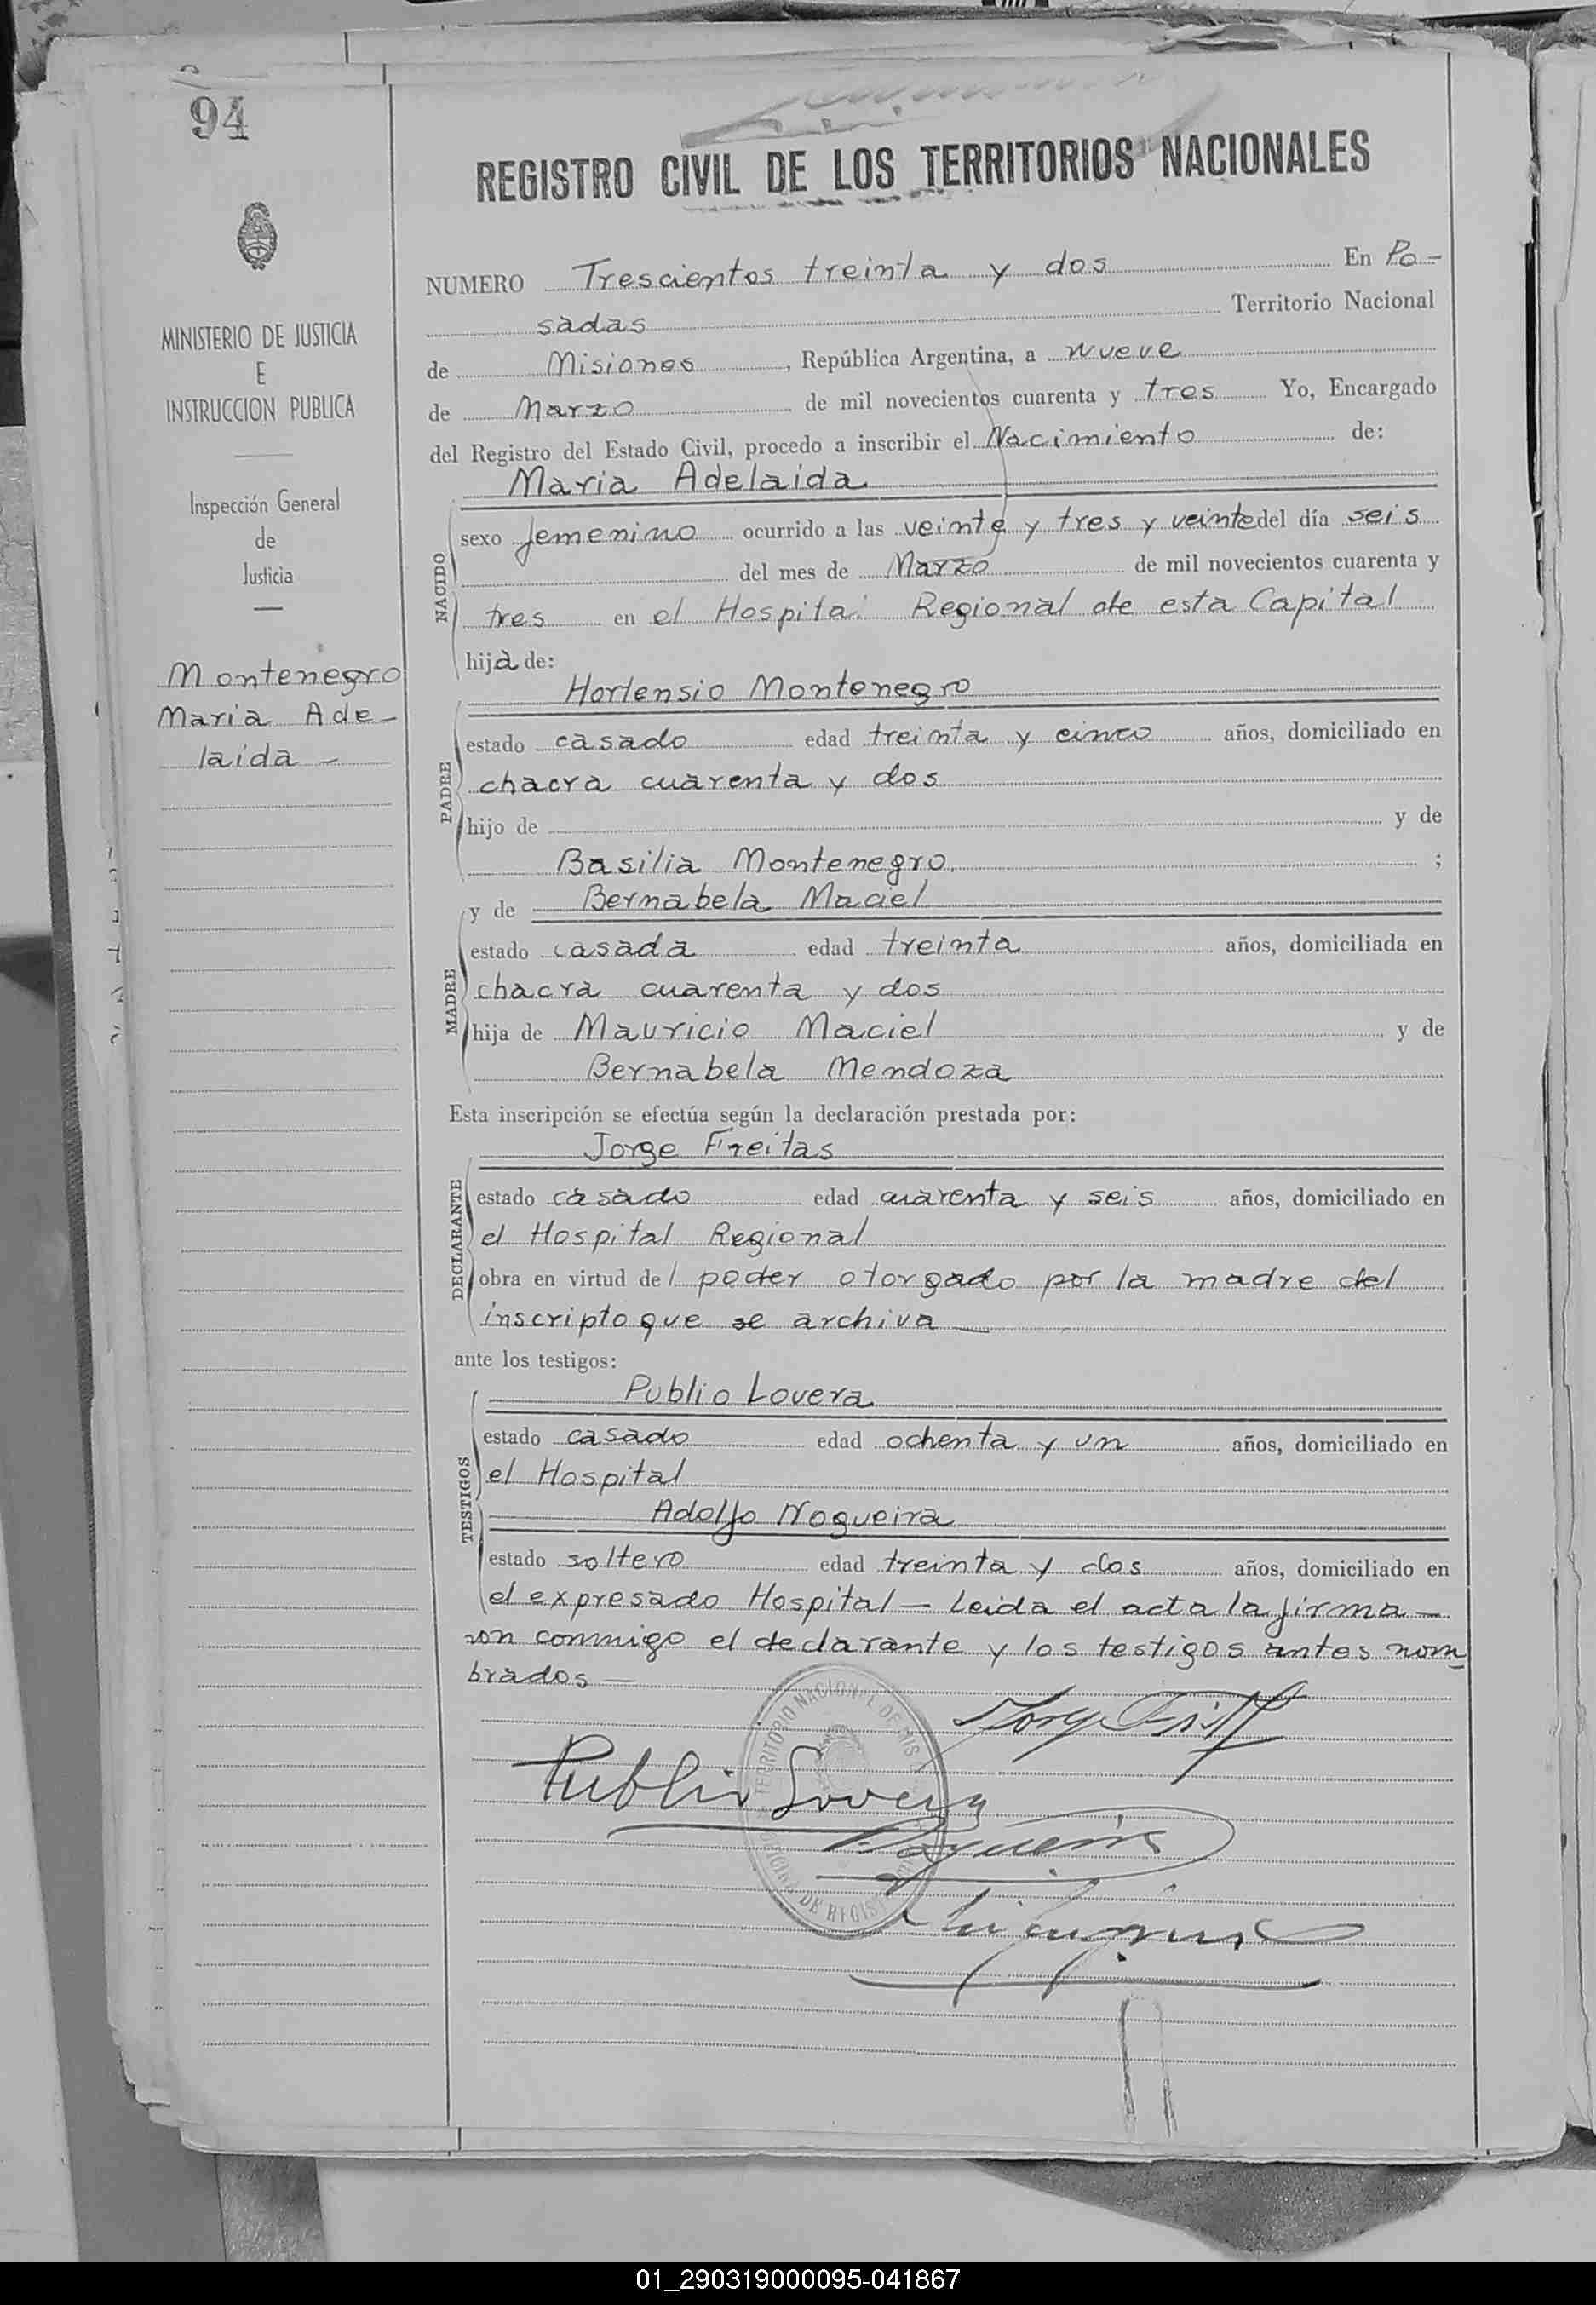 94
REGISTRO CIVIL DE LOS TERRITORIOS NACIONALES
MINISTERIO DE JUSTICIA
E
INSTRUCCION PUBLICA
Inspección General
de
Justicia
Montenegro
Maria Ade-
laida -
NUMERO Trescientos treinta y dos En Po-
sadas Territorio Nacional
de Misiones, República Argentina, a nueve
de Marzo de mil novecientos cuarenta y tres Yo, Encargado
del Registro del Estado Civil, procedo a inscribir el Nacimiento de:
Maria Adelaida
NACIDO
sexo femenino ocurrido a las veinte y tres y veinte del día seis
del mes de Marzo de mil novecientos cuarenta y
tres en el Hospital Regional de esta Capital
hija de:
Hortensio Montenegro
PADRE
estado casado edad treinta y cinco años, domiciliado en
chacra cuarenta y dos
hijo de y de
Basilia Montenegro ;
y de Bernabela Maciel
MADRE
estado casada edad treinta años, domiciliada en
chacra cuarenta y dos
hija de Mauricio Maciel y de
Bernabela Mendoza
Esta inscripción se efectúa según la declaración prestada por:
Jorge Freitas
DECLARANTE
estado casado edad cuarenta y seis años, domiciliado en
el Hospital Regional
obra en virtud del poder otorgado por la madre del
inscripto que se archiva
ante los testigos:
Publio Lovera
TESTIGOS
estado casado edad ochenta y un años, domiciliado en
el Hospital
Adolfo Nogueira
estado soltero edad treinta y dos años, domiciliado en
el expresado Hospital — Leida el acta la firma-
ron conmigo el declarante y los testigos antes nom
brados —
Publio Lovera
Nogueira
01_290319000095-041867